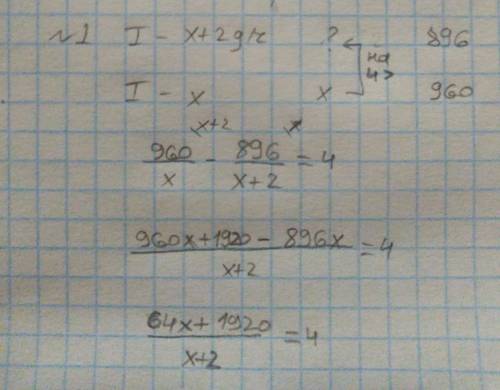 №1 I - x+2 д/ч ? 896
I - x x на 4> 960
x+2 x
960/x - 896/x+2 = 4
960x+1920 - 896x/x+2 = 4
64x+1920/x+2 = 4